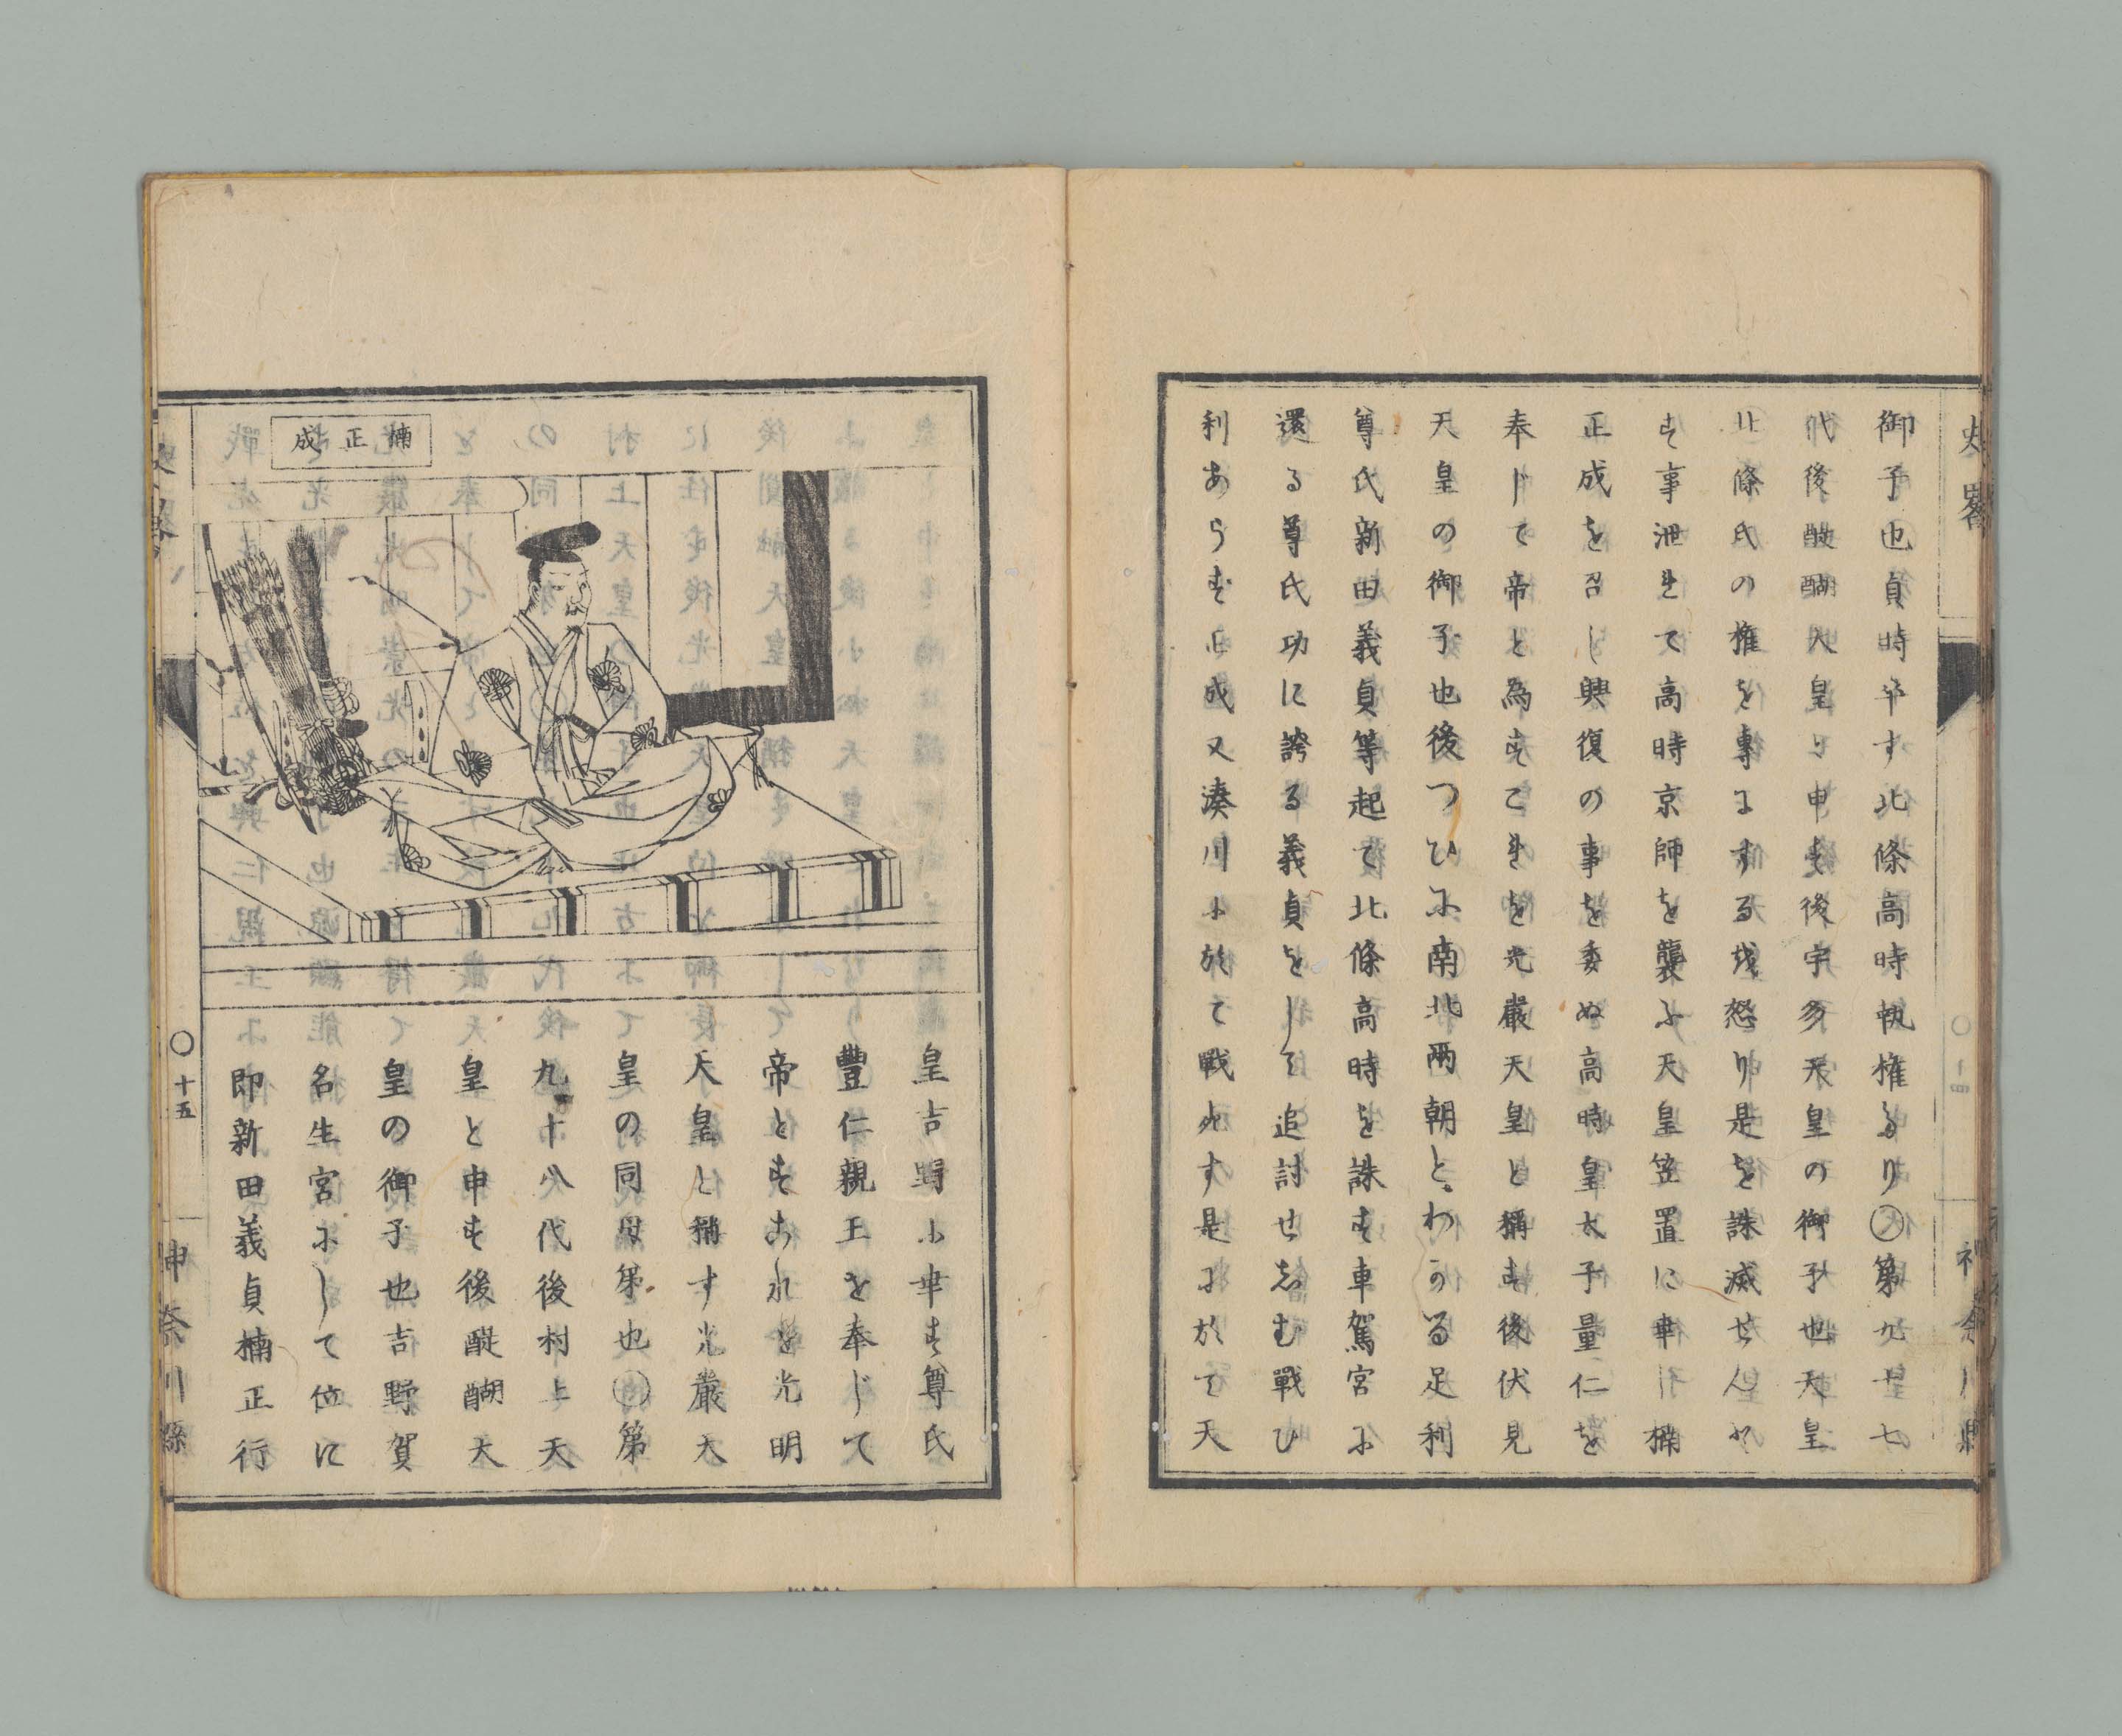 史畧
神奈川縣
御子也貞時卒す北條高時執権たり○第九十七
代後醍醐天皇と申も後宇多天皇の御子也天皇
北條氏の権を專にする越怒り是を誅滅せんと
す事泄れて高時京師を襲ふ天皇笠置に幸し楠
正成を召し興復の事を委ぬ高時皇太子量仁を
奉じて帝と為すこれを光嚴天皇と稱す後伏見
天皇の御子也後つひに南北兩朝とわかる足利
尊氏新田義貞等起て北條高時を誅す車駕宮に
還る尊氏功に誇る義貞をして追討せしむ戰ひ
利あらず正成又湊川に於て戰死す是に於て天
楠正成
皇吉野に幸す尊氏
豊仁親王を奉じて
帝とすこれを光明
天皇と稱す光嚴天
皇の同母弟也○第
九十八代後村上天
皇と申す後醍醐天
皇の御子也吉野賀
名生宮にして位に
即新田義貞楠正行
史畧
○十五
神奈川縣